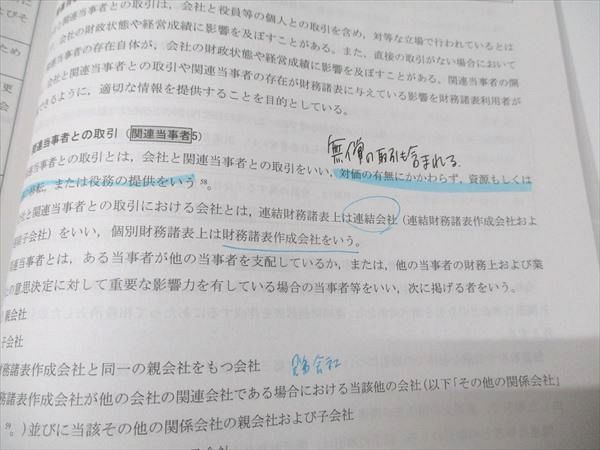 関連当事者との取引は、会社と役員等の個人との取引を含め、対等な立場で行われているとは
会社の財政状態や経営成績に影響を及ぼすことがある。また、直接の取引がない場合において
当事者の存在自体が、会社の財政状態や経営成績に影響を及ぼすことがある。関連当事者の開
会社と関連当事者との取引や関連当事者の存在が財務諸表に与えている影響を財務諸表利用者が
できるように、適切な情報を提供することを目的としている。
無償の取引も含まれる
関連当事者との取引（関連当事者5）
当事者との取引とは、会社と関連当事者との取引をいい、対価の有無にかかわらず、資源もしくは
移転、または役務の提供をいう58。
と関連当事者との取引における会社とは、連結財務諸表上は連結会社（連結財務諸表作成会社およ
子会社）をいい、個別財務諸表上は財務諸表作成会社をいう。
当事者とは、ある当事者が他の当事者を支配しているか、または、他の当事者の財務上および業
の意思決定に対して重要な影響力を有している場合の当事者等をいい、次に掲げる者をいう。
親会社
子会社
務諸表作成会社と同一の親会社をもつ会社 兄弟会社
務諸表作成会社が他の会社の関連会社である場合における当該他の会社（以下「その他の関係会社」
59。）並びに当該その他の関係会社の親会社および子会社